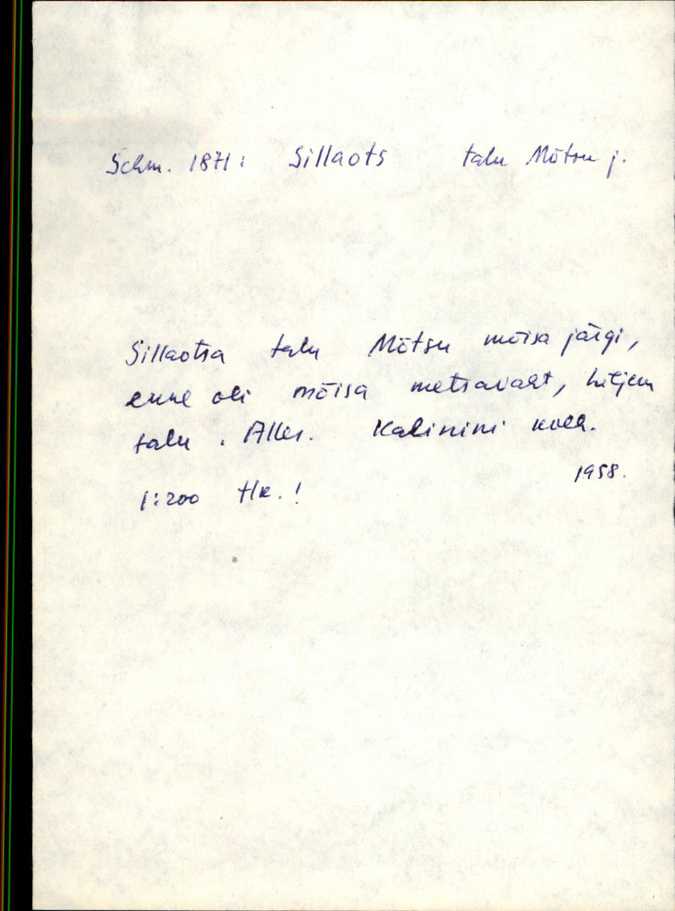 Schm. 1871: Sillaots talu Mõtsu j.
Sillaotsa talu Mõtsu mõisa järgi,
enne oli mõisa metsavaht, hiljem
talu. Alles. Kalinini kolh.
1958.
1:200 Hk.!